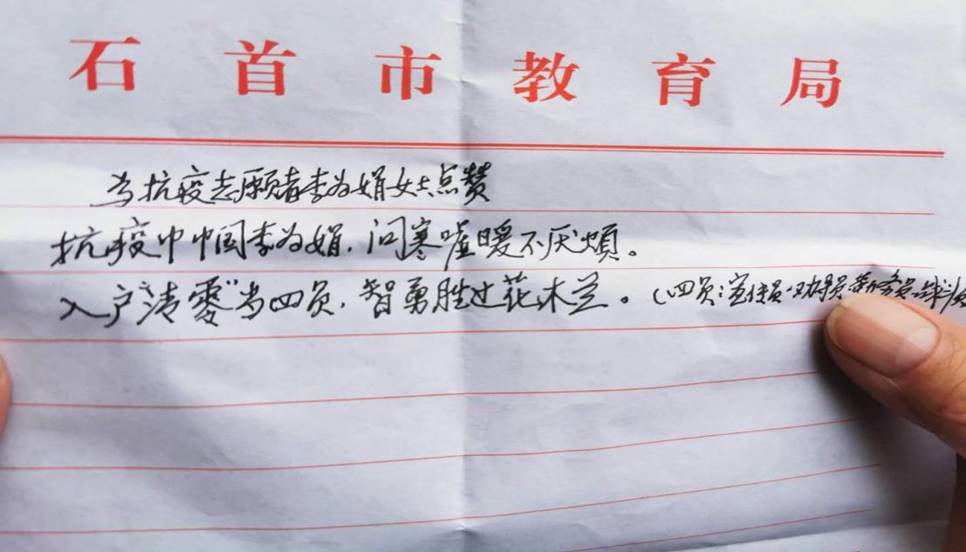 石首市教育局
为抗疫志愿者李为娟女士点赞
抗疫巾帼李为娟，问寒嘘暖不厌烦。
入户"清零"当四员，智勇胜过花木兰。（四员：宣传员